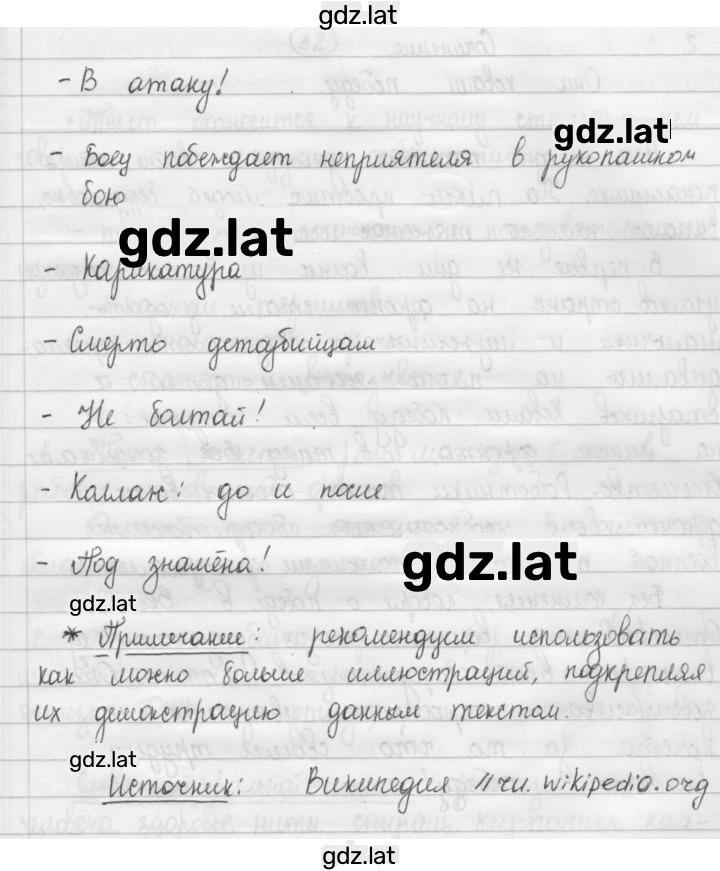 gdz.lat
- В атаку!
gdz.lat
- Боец побеждает неприятеля в рукопашном
бою
gdz.lat
- Карикатура
- Смерть детоубийцам
- Не болтай!
- Коллаж: до и после
- Под знамёна!
gdz.lat
gdz.lat
* Примечание: рекомендуем использовать
как можно больше иллюстраций, подкрепляя
их демонстрацию данным текстом.
gdz.lat
Источник: Википедия //ru.wikipedia.org
gdz.lat